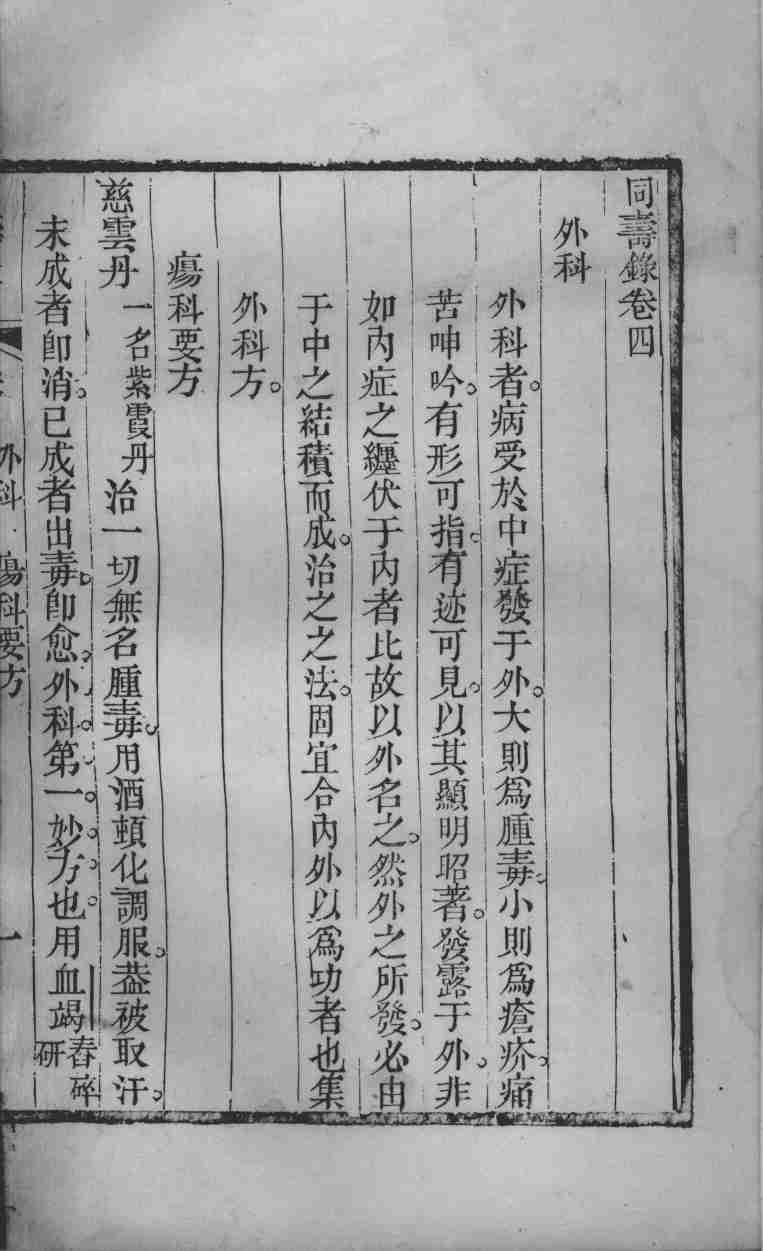 同壽錄卷四
外科
外科者。病受於中症發于外。大則爲腫毒。小則爲瘡疥。痛
苦呻吟。有形可指。有迹可見。以其顯明昭著。發露于外。非
如內症之纏伏于內者比故以外名之。然外之所發。必由
于中之結積而成。治之之法。固宜合內外以爲功者也集
外科方。
瘍科要方
慈雲丹 一名紫霞丹 治一切無名腫毒。用酒頓化調服。葢被取汗。
未成者卽消。已成者出毒。卽愈。外科第一妙方也。用血竭 舂碎研
外科 瘍科要方 一